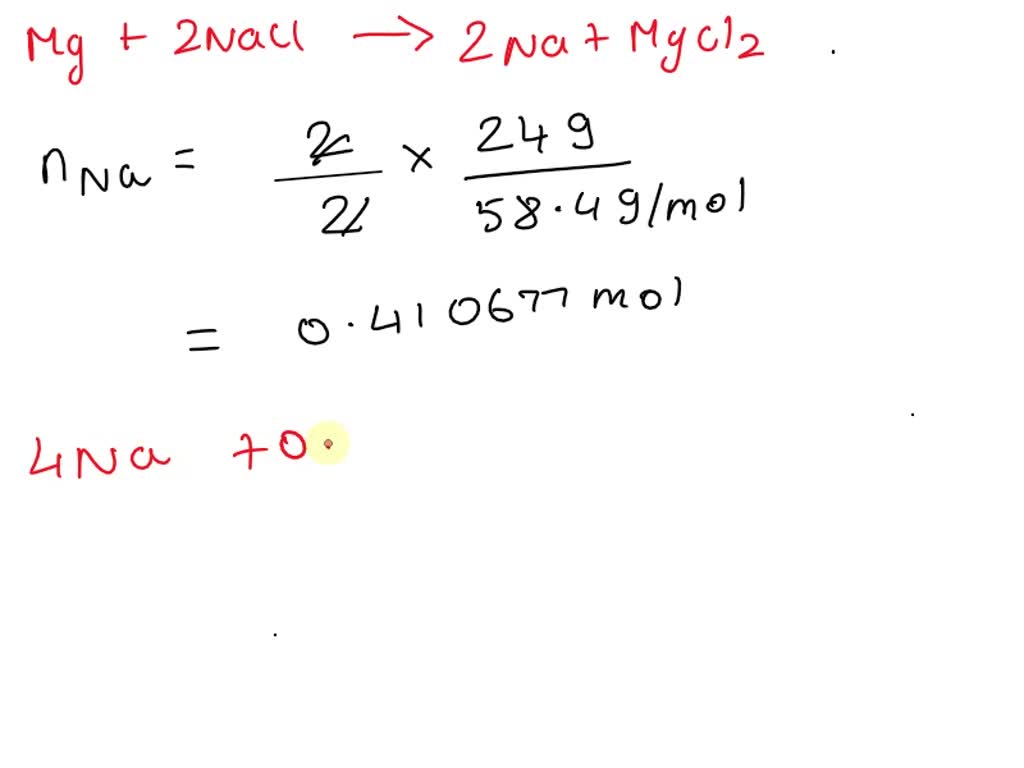 Mg + 2NaCl → 2Na + MgCl2
nNa = 2/2 × 24g/58.4g/mol
= 0.410677 mol
4Na + O